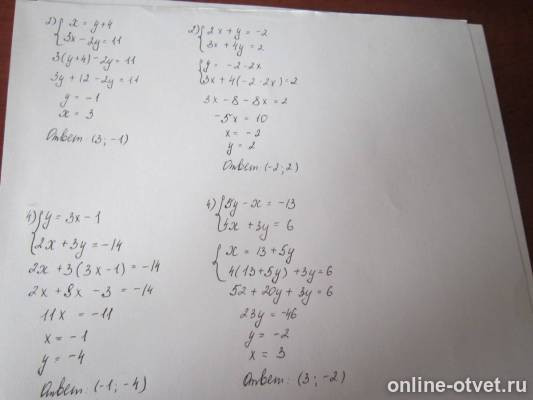 2) { x = y+4
3x - 2y = 11
3(y+4) - 2y = 11
3y + 12 - 2y = 11
y = -1
x = 3
Ответ: (3; -1)
2) { 2x + y = -2
3x + 4y = 2
{ y = -2 - 2x
3x + 4(-2 - 2x) = 2
3x - 8 - 8x = 2
-5x = 10
x = -2
y = 2
Ответ: (-2; 2)
4) { y = 3x - 1
2x + 3y = -14
2x + 3(3x - 1) = -14
2x + 9x - 3 = -14
11x = -11
x = -1
y = -4
Ответ: (-1; -4)
4) { 5y - x = -13
4x + 3y = 6
{ x = 13 + 5y
4(13 + 5y) + 3y = 6
52 + 20y + 3y = 6
23y = -46
y = -2
x = 3
Ответ: (3; -2)
online-otvet.ru